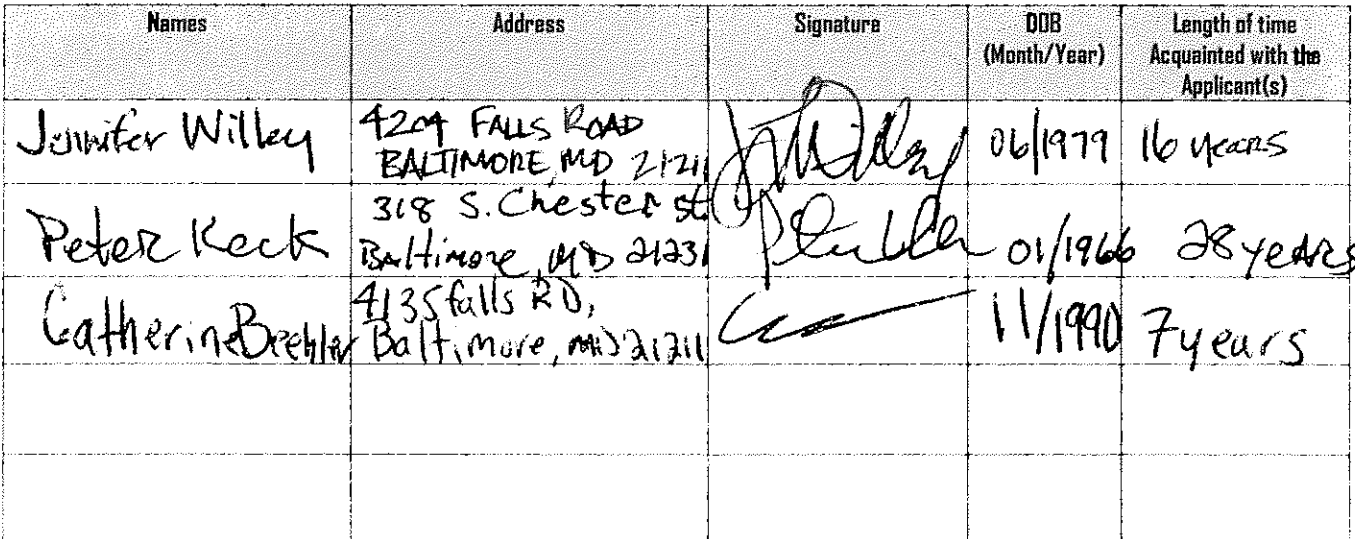 Names Address Signature DOB (Month/Year) Length of time Acquainted with the Applicant(s)
Jennifer Willey 4204 FALLS ROAD
BALTIMORE, MD 21211 06/1979 16 years
Peter Keck 318 S. Chester St
Baltimore, MD 21231 01/1966 28 years
Catherine 4135 falls RD,
Baltimore, MD 21211 11/1990 7 years